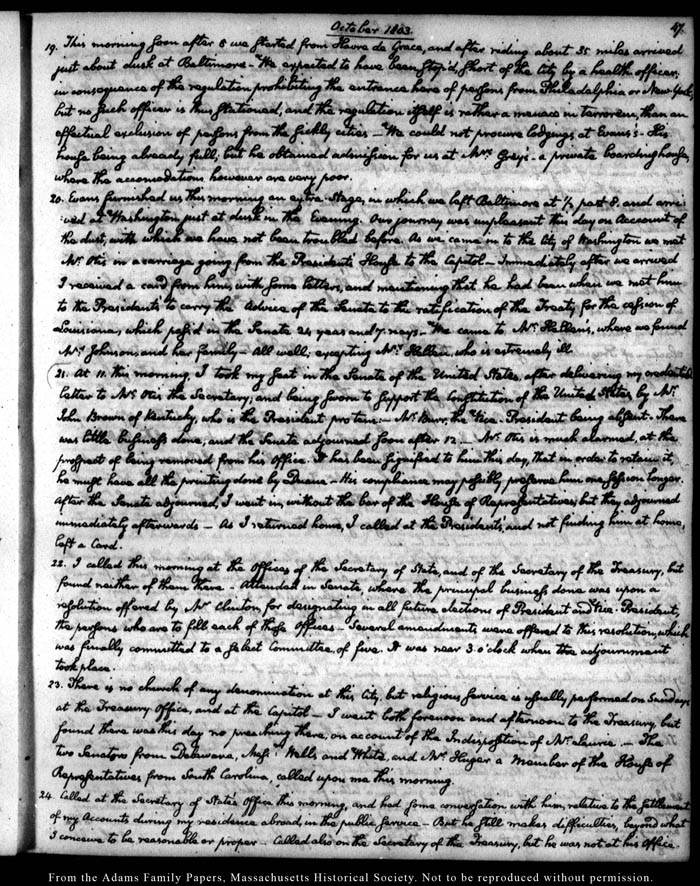 October 1803.
47
19. This morning soon after 8 we started from Havre de Grace, and after riding about 35 miles arrived
just about dusk at Baltimore — We expected to have been stop'd, short of the City by a health officer,
in consequence of the regulation prohibiting the entrance here of persons from Philadelphia or New-York,
but no such officer is thus stationed, and the regulation itself is rather a menace in terrorem, than an
effectual exclusion of persons from the sickly cities — We could not procure lodgings at Evans's — His
house being already full; but he obtained admission for us at Mrs. Grey's — a private boarding house,
where the accomodations however are very poor.
20. Evans furnished us this morning an extra Stage, in which we left Baltimore at ½ past 8. and arri-
ived at Washington just at dusk in the Evening. Our journey was unpleasant this day on Account of
the dust, with which we have not been troubled before. As we came in to the City of Washington we met
Mr. Otis in a carriage going from the President's House to the Capitol — Immediately after we arrived
I received a card from him, with some letters, and mentioning that he had been when we met him
to the President's to carry the Advice of the Senate to the ratification of the Treaty for the cession of
Louisiana, which pass'd in the Senate 24 yeas and 7. nays. We came to Mr. Hellen's, where we found
Mrs. Johnson and her family — All well, excepting Mrs. Hellen, who is extremely ill.
21. At 11. this morning I took my seat in the Senate of the United States, after delivering my credential
letter to Mr. Otis the Secretary, and being sworn to support the Constitution of the United States by Mr.
John Brown of Kentucky, who is the President pro tem: — Mr. Burr, the Vice-President being absent. There
was little business done, and the Senate adjourned soon after 12. — Mr. Otis is much alarmed, at the
prospect of being removed from his Office. It has been signified to him this day, that in order to retain it,
he must have all the printing done by Duane — His compliance may possibly preserve him one session longer.
After the Senate adjourned, I went in, without the bar of the House of Representatives; but they adjourned
immediately afterwards — As I returned home, I called at the President's, and not finding him at home,
left a Card.
22. I called this morning at the Offices of the Secretary of State, and of the Secretary of the Treasury, but
found neither of them there — Attended in Senate, where the principal business done was upon a
resolution offered by Mr. Clinton, for designating in all future elections of President and Vice-President,
the persons who are to fill each of those Offices — Several amendments were offered to this resolution, which
was finally committed to a select Committee, of five. It was near 3. o'clock when the adjournment
took place.
23. There is no church of any denomination at this City, but religious service is usually performed on Sundays
at the Treasury Office, and at the Capitol — I went both forenoon and afternoon to the Treasury, but
found there was this day no preaching there, on account of the Indisposition of Mr. Laurie. — The
two Senators from Delaware, Mess: Wells and White, and Mr. Huger a Member of the House of
Representatives from South Carolina, called upon me this morning.
24. Called at the Secretary of State's Office this morning, and had some conversation with him, relative to the settlement
of my Accounts during my residence abroad, in the public service — But he still makes difficulties, beyond what
I conceive to be reasonable or proper — Called also on the Secretary of the Treasury, but he was not at his Office.
From the Adams Family Papers, Massachusetts Historical Society. Not to be reproduced without permission.